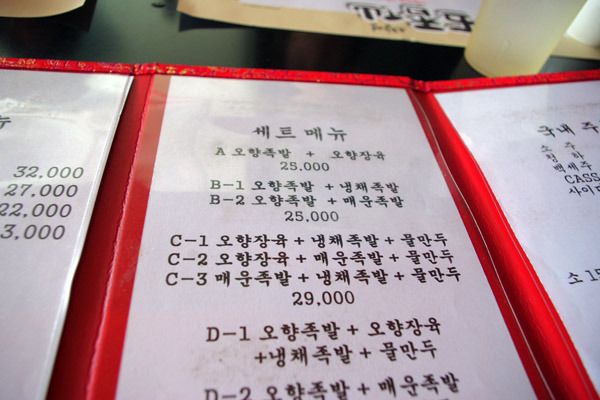 32.000
27.000
22.000
3,000
세트메뉴
A 오향족발 + 오향장육
25.000
B-1 오향족발 + 냉채족발
B-2 오향족발 + 매운족발
25,000
C-1 오향장육 + 냉채족발 + 물만두
C-2 오향장육 + 매운족발 + 물만두
C-3 매운족발 + 냉채족발 + 물만두
29,000
D-1 오향족발 + 오향장육
+냉채족발 + 물만두
D-2 오향족발 + 매운족발
국내 주
소 주
청 하
백세주
CASS
사이다
소 15